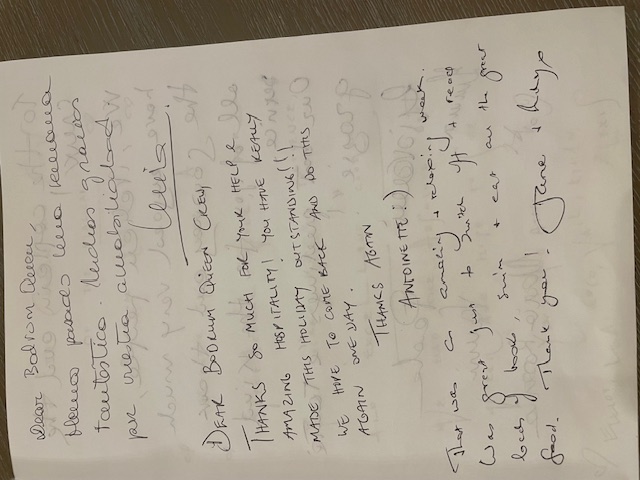 Dear Bodrum Queen,
Hemos pasado una semana
fantástica. Muchas gracias
por vuestra amabilidad.
DEAR BODRUM QUEEN CREW
THANKS SO MUCH FOR YOUR HELP &
AMAZING HOSPITALITY! YOU HAVE REALLY
MADE THIS HOLIDAY OUTSTANDING!!!
WE HAVE TO COME BACK AND DO THIS
AGAIN ONE DAY.
THANKS AGAIN
ANTOINETTE :)
That was an amazing & relaxing week.
Was great just to switch off & read
loads of books, swim & eat all the great
food. Thank you! Jane &